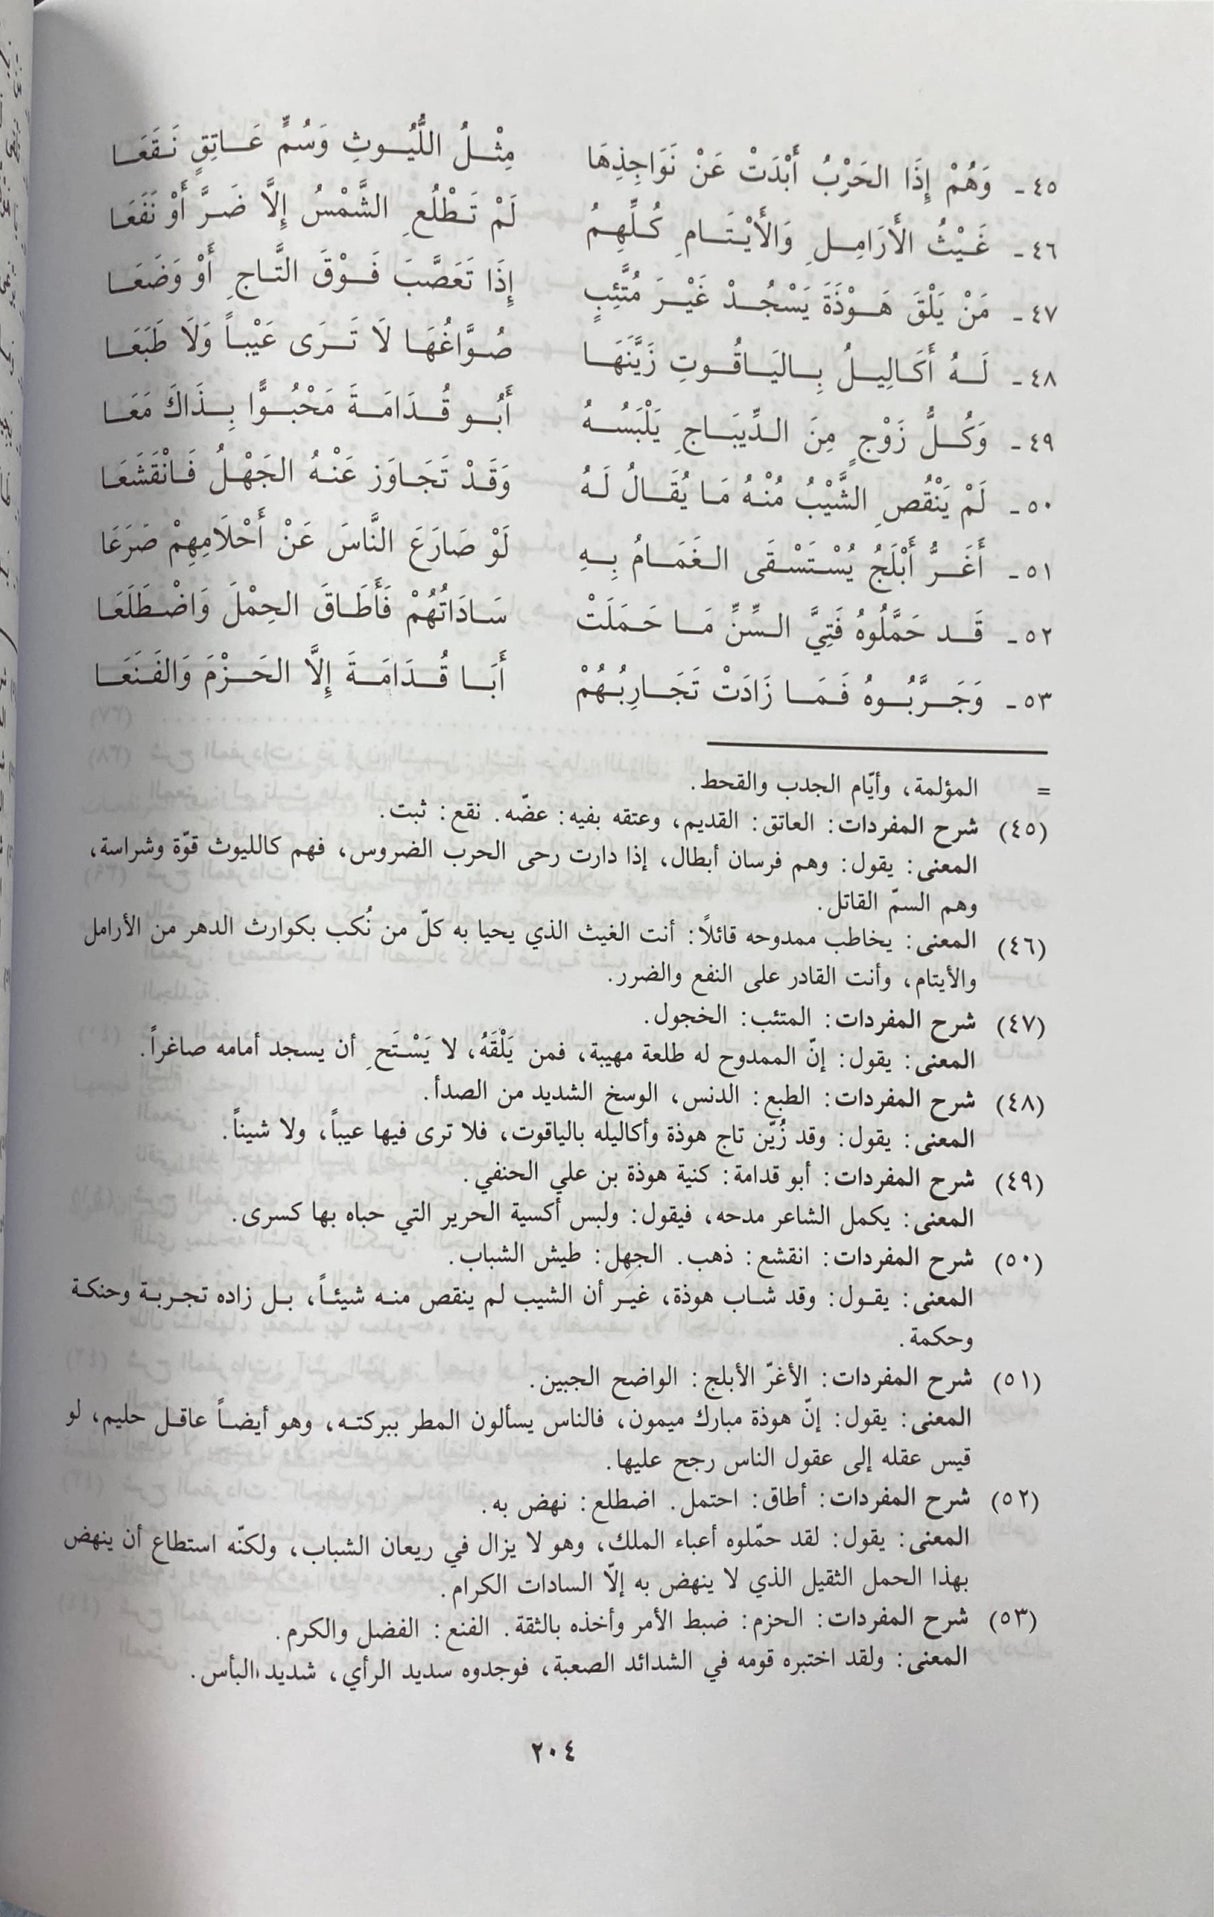 ٤٥ - وَهُمْ إِذَا الحَرْبُ أَبْدَتْ عَنْ نَوَاجِذِهَا مِثْلُ اللُّيُوثِ وَسُمٍّ عَاتِقٍ نَقَعَا
٤٦ - غَيْثُ الأَرَامِلِ وَالأَيْتَامِ كُلِّهِمُ لَمْ تَطْلُعِ الشَّمْسُ إِلَّا ضَرَّ أَوْ نَفَعَا
٤٧ - مَنْ يَلْقَ هَوْذَةَ يَسْجُدْ غَيْرَ مُتَّئِبٍ إِذَا تَعَصَّبَ فَوْقَ التَّاجِ أَوْ وَضَعَا
٤٨ - لَهُ أَكَالِيلُ بِاليَاقُوتِ زَيَّنَهَا صُوَّاغُهَا لَا تَرَى عَيْباً وَلَا طَبَعَا
٤٩ - وَكُلُّ زَوْجٍ مِنَ الدِّيبَاجِ يَلْبَسُهُ أَبُو قُدَامَةَ مَحْبُوًّا بِذَاكَ مَعَا
٥٠ - لَمْ يَنْقُصِ الشَّيْبُ مُنْهُ مَا يُقَالُ لَهُ وَقَدْ تَجَاوَز عَنْهُ الجَهْلُ فَانْقَشَعَا
٥١ - أَغَرُّ أَبْلَجُ يُسْتَسْقَى الغَمَامُ بِهِ لَوْ صَارَعَ النَّاسَ عَنْ أَحْلَامِهِمْ صَرَعَا
٥٢ - قَد حَمَّلُوهُ فَتِيَّ السِّنِّ مَا حَمَلَتْ سَادَاتُهُمْ فَأَطَاقَ الحِمْلَ وَاضْطَلَعَا
٥٣ - وَجَرَّبُوهُ فَمَا زَادَتْ تَجَارِبُهُمْ أَبَا قُدَامَةَ إِلَّا الحَزْمَ وَالفَنَعَا
= المؤلمة، وأيّام الجدب والقحط.
(٤٥) شرح المفردات: العاتق: القديم، وعتقه بفيه: عضّه. نقع: ثبت.
المعنى: يقول: وهم فرسان أبطال، إذا دارت رحى الحرب الضروس، فهم كالليوث قوّة وشراسة،
وهم السمّ القاتل.
(٤٦) المعنى: يخاطب ممدوحه قائلًا: أنت الغيث الذي يحيا به كلّ من نُكب بكوارث الدهر من الأرامل
والأيتام، وأنت القادر على النفع والضرر.
(٤٧) شرح المفردات: المتئب: الخجول.
المعنى: يقول: إنّ الممدوح له طلعة مهيبة، فمن يَلْقَهُ، لا يَسْتَحِ أن يسجد أمامه صاغراً.
(٤٨) شرح المفردات: الطبع: الدنس، الوسخ الشديد من الصدأ.
المعنى: يقول: وقد زُيّن تاج هوذة وأكاليله بالياقوت، فلا ترى فيها عيباً، ولا شيناً.
(٤٩) شرح المفردات: أبو قدامة: كنية هوذة بن علي الحنفي.
المعنى: يكمل الشاعر مدحه، فيقول: ولبس أكسية الحرير التي حباه بها كسرى.
(٥٠) شرح المفردات: انقشع: ذهب. الجهل: طيش الشباب.
المعنى: يقول: وقد شاب هوذة، غير أن الشيب لم ينقص منه شيئاً، بل زاده تجربة وحنكة
وحكمة.
(٥١) شرح المفردات: الأغرّ الأبلج: الواضح الجبين.
المعنى: يقول: إنّ هوذة مبارك ميمون، فالناس يسألون المطر ببركته، وهو أيضاً عاقل حليم، لو
قيس عقله إلى عقول الناس رجح عليها.
(٥٢) شرح المفردات: أطاق: احتمل. اضطلع: نهض به.
المعنى: يقول: لقد حمّلوه أعباء الملك، وهو لا يزال في ريعان الشباب، ولكنّه استطاع أن ينهض
بهذا الحمل الثقيل الذي لا ينهض به إلّا السادات الكرام.
(٥٣) شرح المفردات: الحزم: ضبط الأمر وأخذه بالثقة. الفنع: الفضل والكرم.
المعنى: ولقد اختبره قومه في الشدائد الصعبة، فوجدوه سديد الرأي، شديد البأس.
٢٠٤